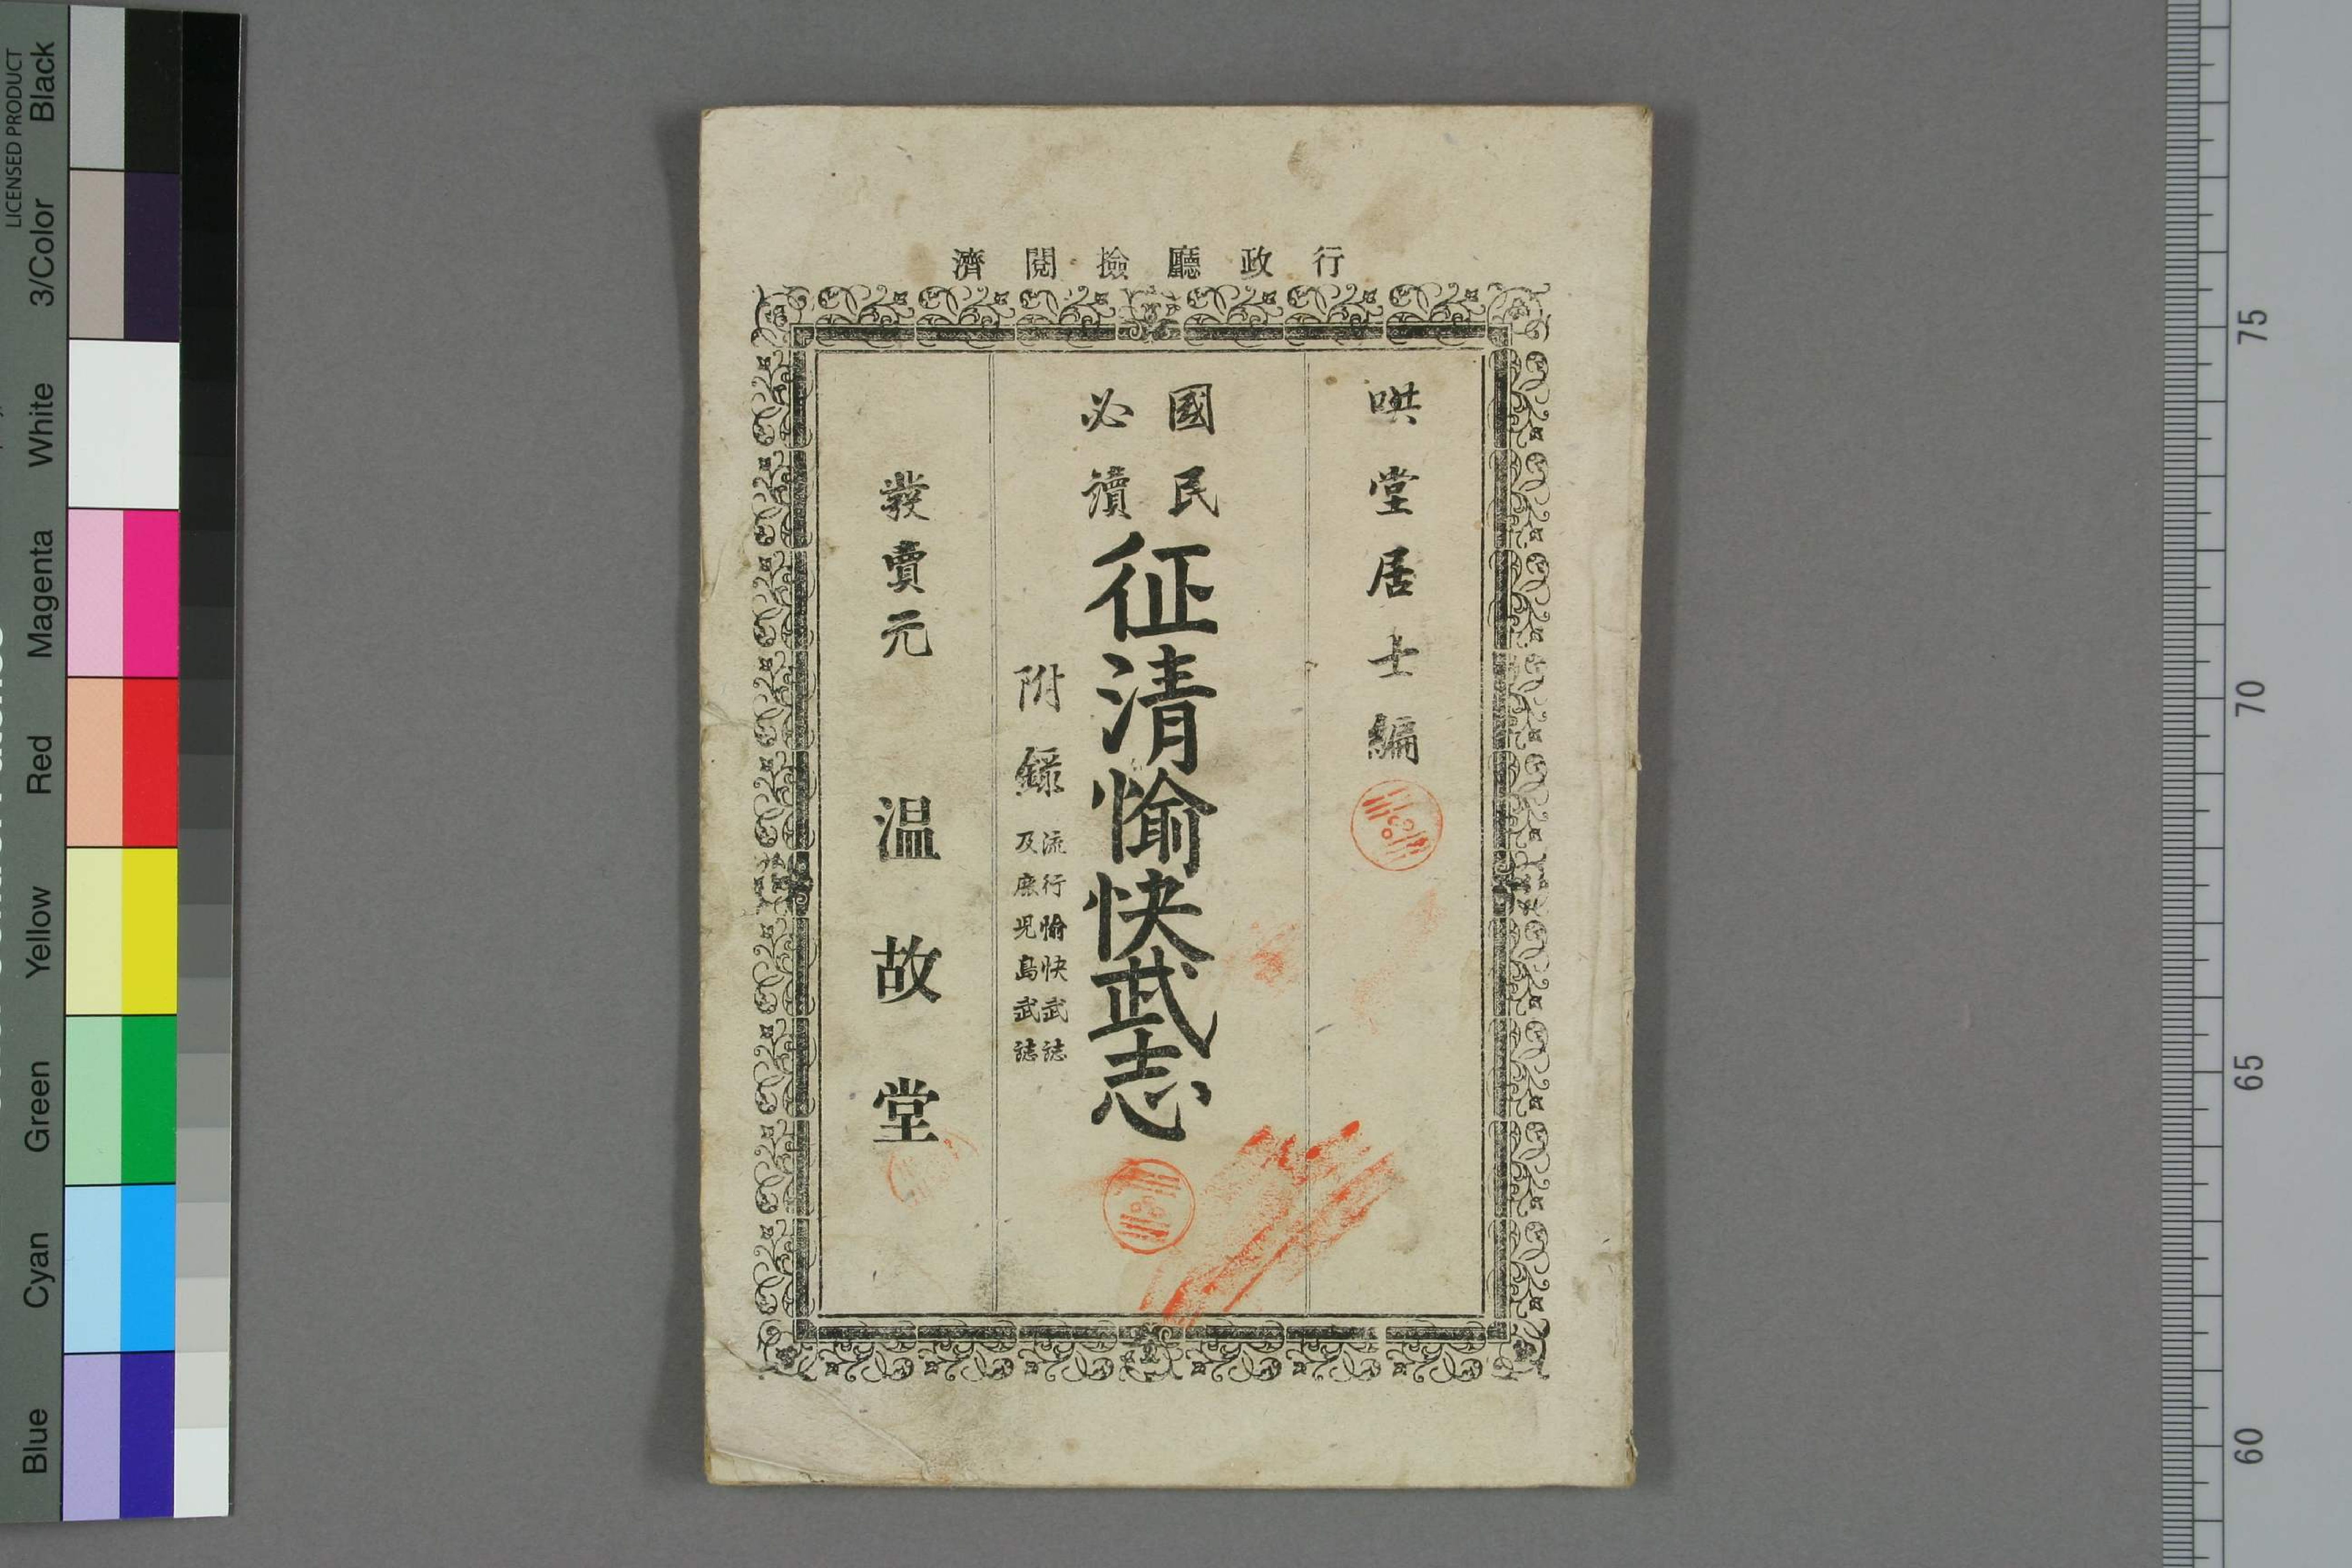 行政廳撿閲濟
哄堂居士編
國民
必讀
征清愉快武志
附錄
流行愉快武誌
及鹿児島武誌
發賣元 温故堂
LICENSED PRODUCT
Black
3/Color
White
Magenta
Red
Yellow
Green
Cyan
Blue
75
70
65
60